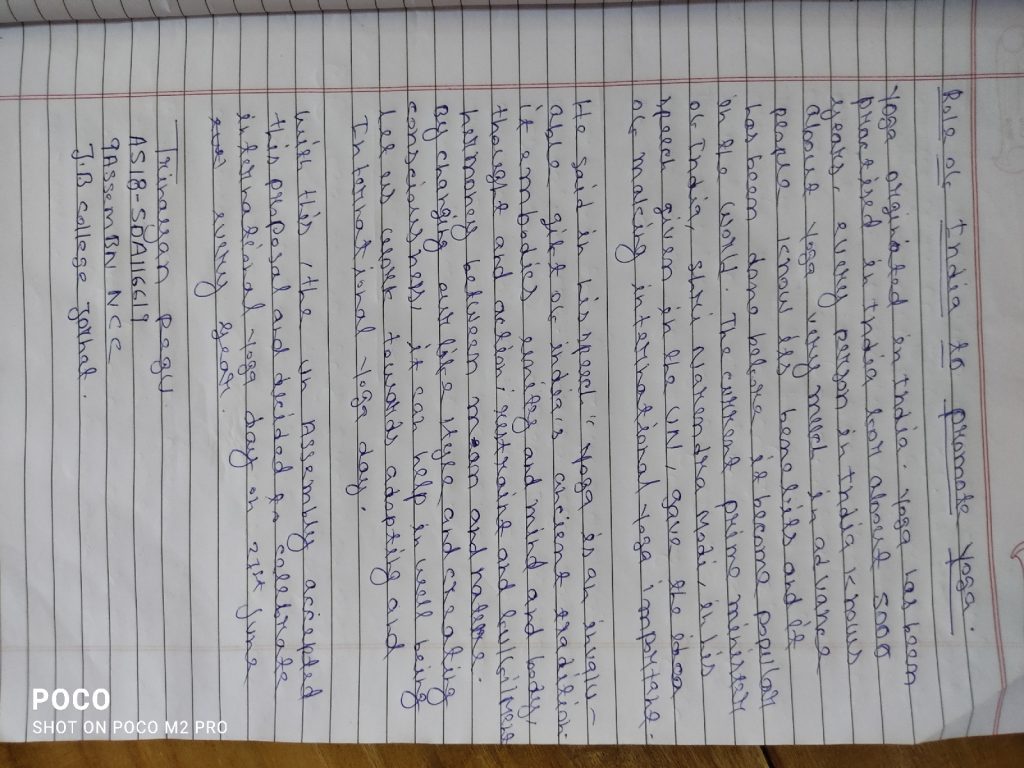 Role of India to promote Yoga.
Yoga originated in India. Yoga has been
practised in India for about 5000
years. every person in India knows
about Yoga very much in advance
people know its benefits and it
has been done before it become popular
in the world. The current prime minister
of India, Shri Narendra Modi, in his
speech given in the UN, gave the idea
of making international Yoga importent.
He said in his speech "Yoga is an invalu-
able gift of india's ancient tradition.
it embodies unity and mind and body,
thought and action; restraint and fulfilment
hormoney between man and nature.
By changing our life style and creating
consciousness, it can help in well being
Let us work towards adopting and
International Yoga day.
with this, the UN Assembly accepted
this proposal and decided to calebrate
international Yoga day on 21st June
every year.
Trinayan Pegu.
AS18-SDA116619
9 Assam BN NCC
J.B College Jorhat.
POCO
SHOT ON POCO M2 PRO